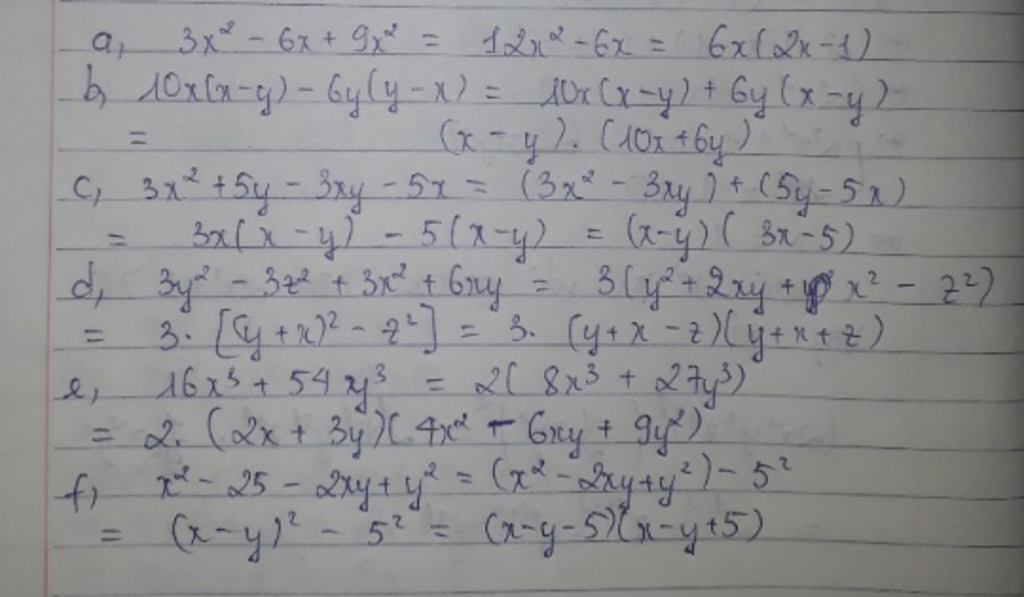 a, 3x² - 6x + 9x² = 12x² - 6x = 6x(2x-1)
b, 10x(x-y) - 6y(y-x) = 10x(x-y) + 6y(x-y)
= (x-y).(10x+6y)
c, 3x² + 5y - 3xy - 5x = (3x² - 3xy) + (5y-5x)
= 3x(x-y) - 5(x-y) = (x-y)(3x-5)
d, 3y² - 3z² + 3x² + 6xy = 3(y² + 2xy + x² - z²)
= 3.[(y+x)² - z²] = 3.(y+x-z)(y+x+z)
e, 16x³ + 54xy³ = 2(8x³ + 27y³)
= 2.(2x+3y)(4x² - 6xy + 9y²)
f, x² - 25 - 2xy + y² = (x² - 2xy + y²) - 5²
= (x-y)² - 5² = (x-y-5)(x-y+5)